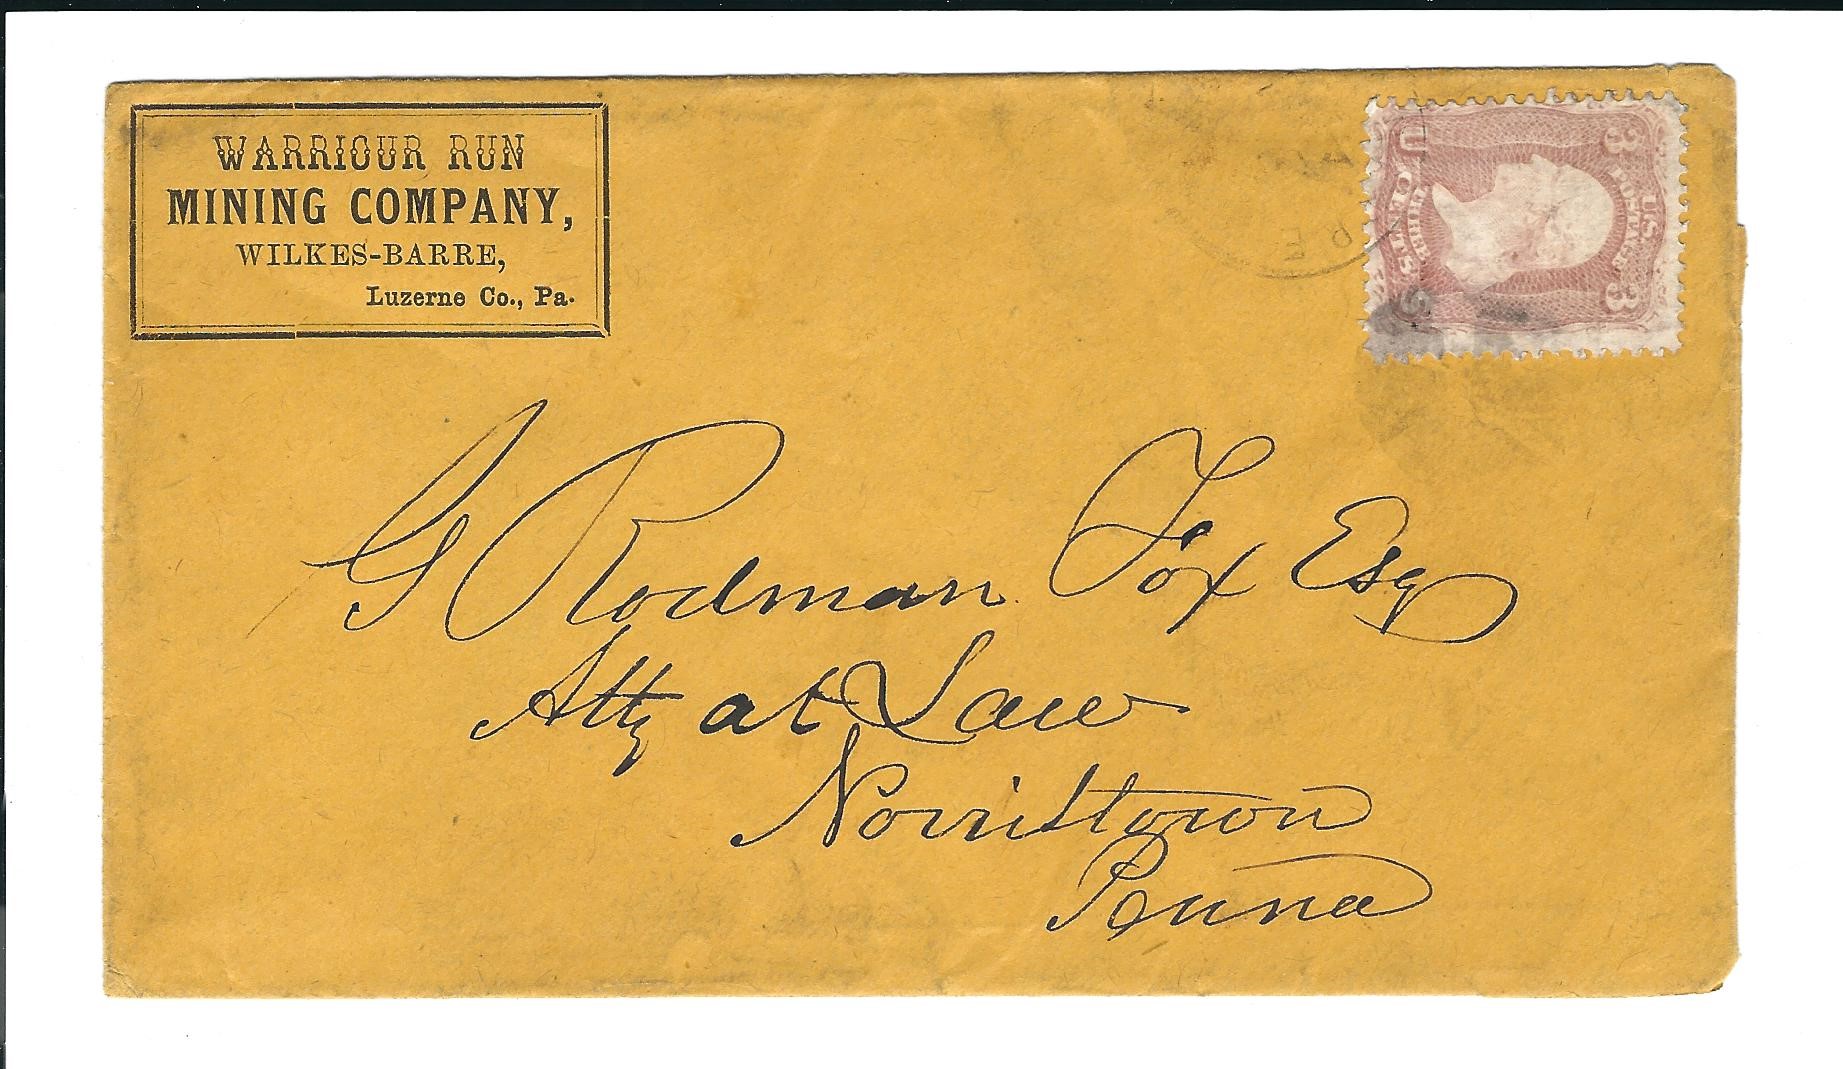 WARRIOUR RUN
MINING COMPANY,
WILKES-BARRE,
Luzerne Co., Pa.
3 U.S. POSTAGE 3
THREE
U CENTS S
G Rodman Fox Esq
Atty at Law
Norristown
Penna